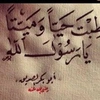 طبت حياً وميتاً
يا رسول الله